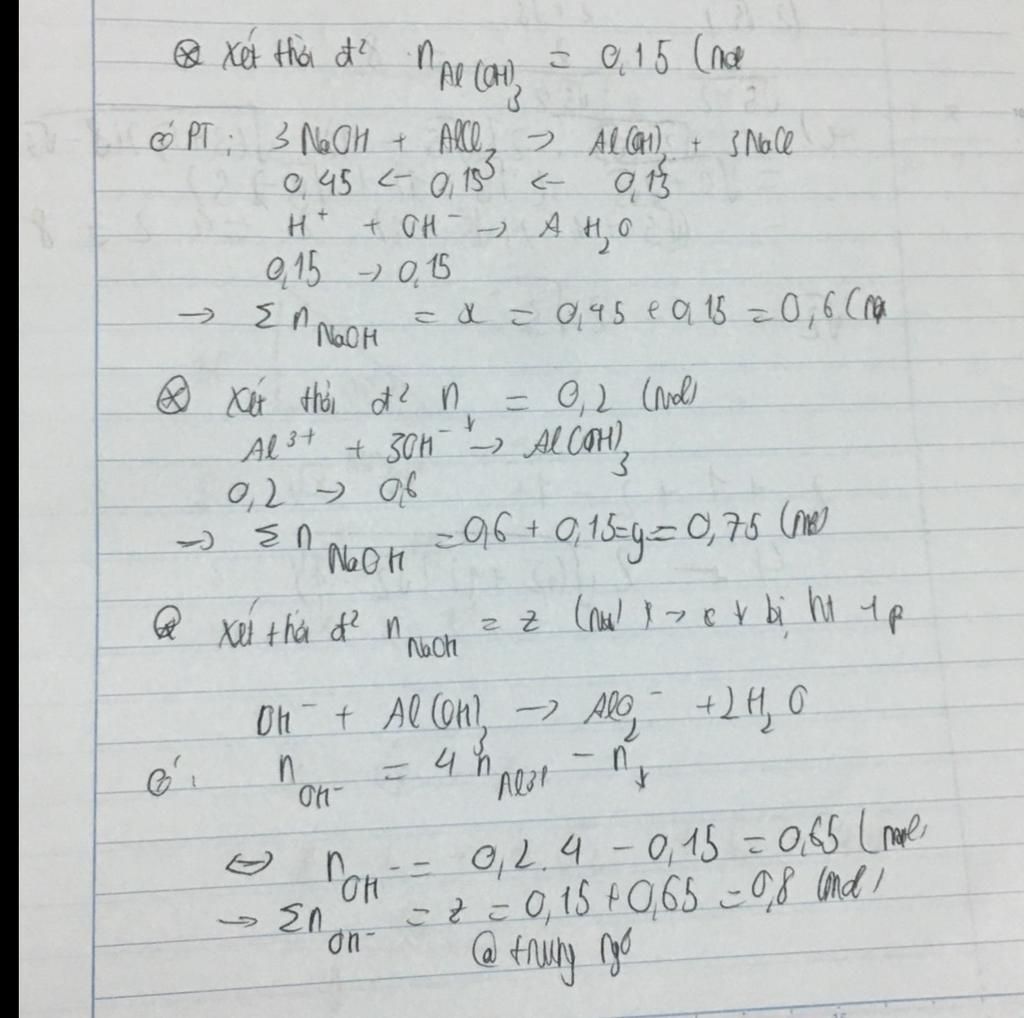 ⊗ Xét thời đ² n Al(OH)₃ = 0,15 (mol
có PT: 3 NaOH + AlCl₃ → Al(OH)₃ + 3NaCl
0,45 ← 0,15 ← 0,15
H⁺ + OH⁻ → H₂O
0,15 → 0,15
→ Σ n NaOH = x = 0,45 + 0,15 = 0,6 (mol
⊗ Xét thời đ² n↓ = 0,2 (mol)
Al³⁺ + 3OH⁻ → Al(OH)₃
0,2 → 0,6
→ Σ n NaOH = 0,6 + 0,15 = y = 0,75 (mol)
⊗ Xét thời đ² n NaOH = z (mol) → ↓ bị ht 1 p
OH⁻ + Al(OH)₃ → AlO₂⁻ + 2H₂O
Có: n OH⁻ = 4 n Al³⁺ − n↓
⇔ n OH⁻ = 0,2 . 4 − 0,15 = 0,65 (mol)
→ Σn OH⁻ = z = 0,15 + 0,65 = 0,8 (mol)
@ trung ngo